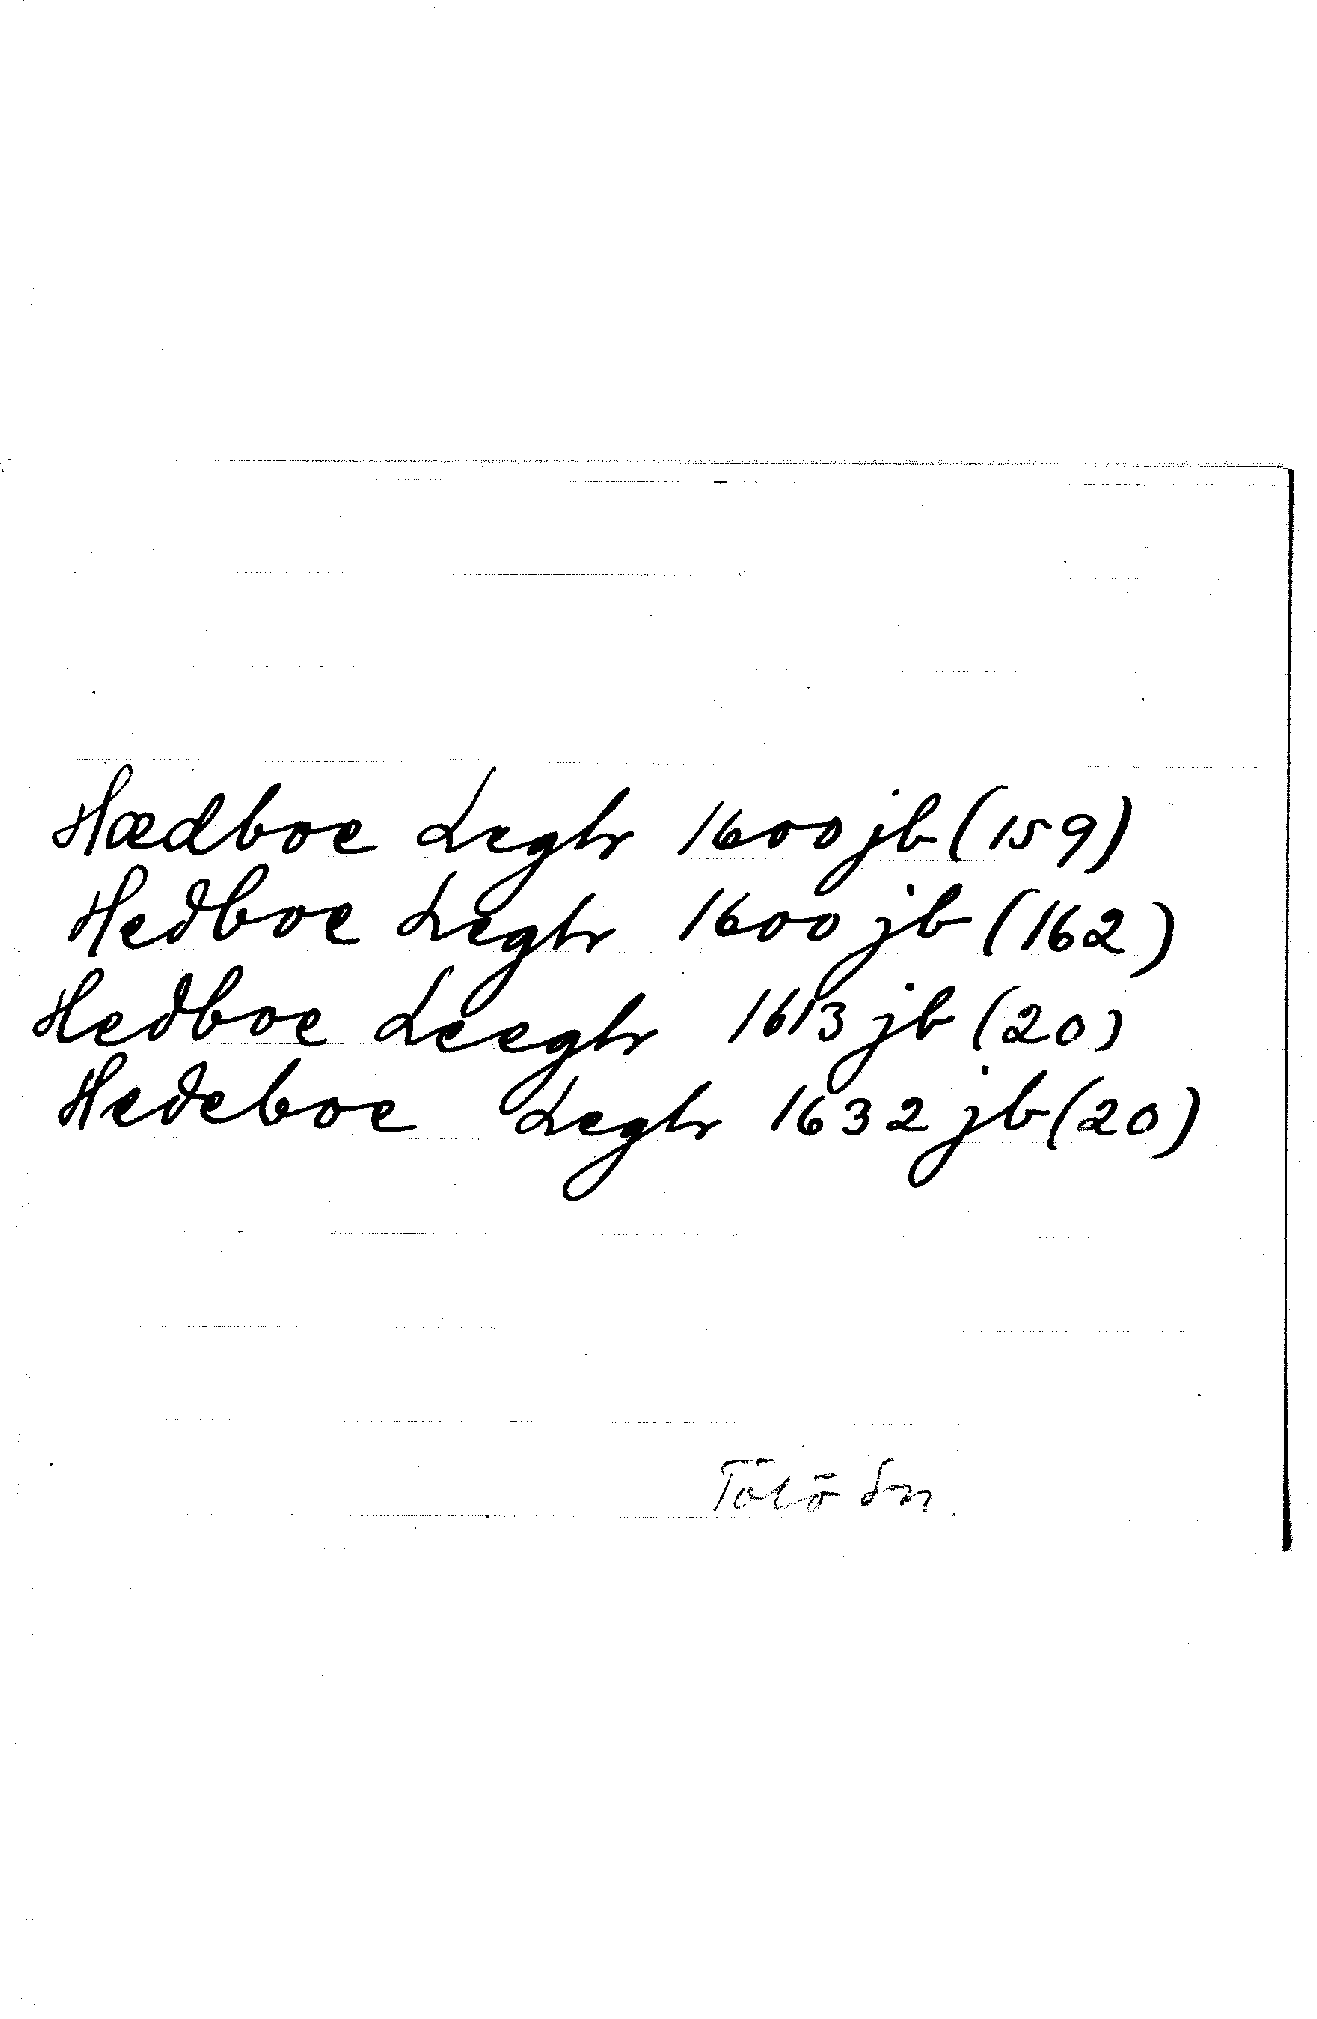 Hædboe Legtr 1600 jb (159)
Hedboe Legtr 1600 jb (162)
Hedboe Leegtr 1613 jb (20)
Hedeboe Legtr 1632 jb (20)
Tölö sn